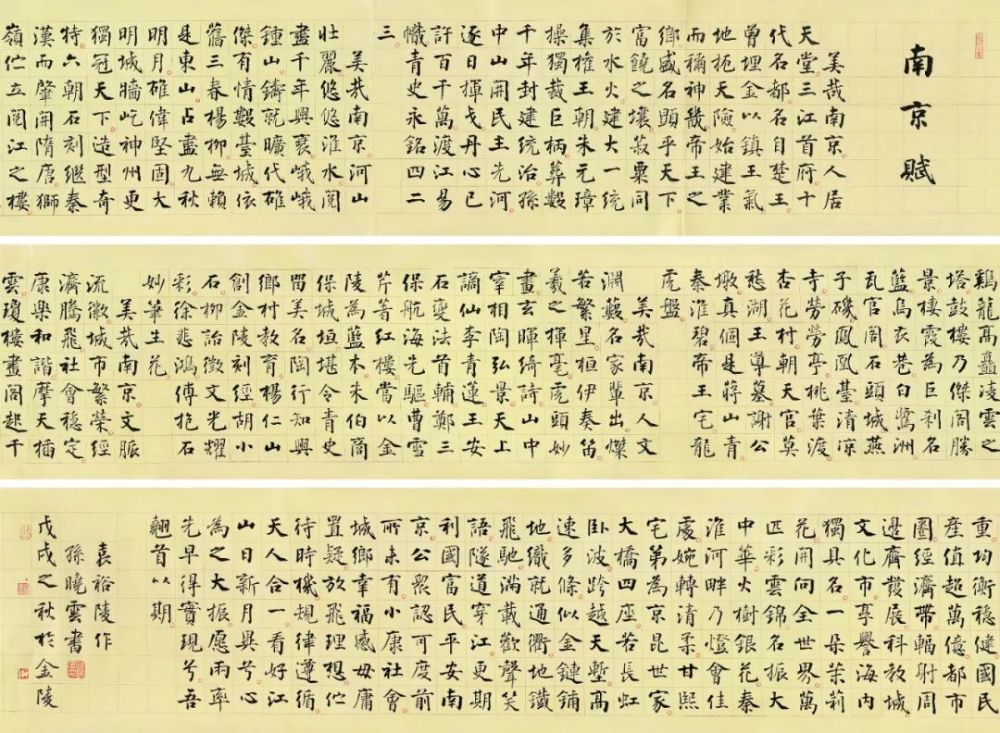 南京賦
美哉南京人居
天堂三江首府十
代名都名自楚王
曾埋金以鎮王氣
地扼天險始建業
而稱神幾帝王之
鄉盛名顯乎天下
富饒之壤菽粟同
於水火建大一統
集權王朝朱元璋
操獨裁巨柄葬數
千年封建統治孫
中山開民主先河
逐日揮戈丹心已
許百千萬渡江易
幟青史永銘四二
三
美哉南京河山
壯麗悠悠淮水閲
盡千年興衰峨峨
鍾山鑄就曠代雄
傑有情觀臺城依
舊三春楊柳無賴
是東山占盡九秋
明月雄偉堅固大
明城牆屹神州更
獨冠天下造型奇
特六朝石刻繼秦
漢而肇開隋唐獅
嶺佇立閲江之樓
雞龍高矗凌雲之
塔鼓樓乃傑閣勝
景棲霞為巨刹名
藍烏衣巷白鷺洲
瓦官閣石頭城燕
子磯鳳凰臺清凉
寺勞勞亭桃葉渡
杏花村朝天宫莫
愁湖王導墓謝公
墩真個是蔣山青
秦淮碧帝王宅龍
虎盤
美哉南京人文
淵藪名家輩出燦
若繁星桓伊奏笛
羲之揮毫虎頭妙
畫玄暉綺詩山中
宰相陶弘景天上
謫仙李青蓮王安
石變法首輔鄭三
保航海先驅曹雪
芹菁紅樓當以金
陵為藍本朱伯商
保城垣堪令青史
留美名陶行知興
鄉村教育楊仁山
創金陵刻經胡小
石柳詒徵文光耀
彩徐悲鴻傅抱石
妙筆生花
美哉南京文脈
流徽城市繁榮經
濟騰飛社會穩定
康樂和諧摩天插
雲瓊樓畫閣起千
重均衡穩健國民
産值超萬億都市
圈經濟帶輻射周
邊齊發展科教城
文化市享譽海内
獨具名一朵茉莉
花開問全世界萬
匹彩雲錦名振大
中華火樹銀花秦
淮河畔乃燈會佳
處婉轉清柔甘熙
宅第為京昆世家
大橋四座若長虹
卧波跨越天塹高
速多條似金鏈鋪
地織就通衢地鐵
飛馳滿載歡聲笑
語隧道穿江更期
利國富民平安南
京公衆認可度前
所未有小康社會
城鄉幸福感毋庸
置疑放飛理想佇
待時機規律遵循
天人合一看好江
山日新月異兮心
為之大振應雨率
先早得實現兮吾
翹首以期
袁裕陵作
孫曉雲書
戊戌之秋於金陵